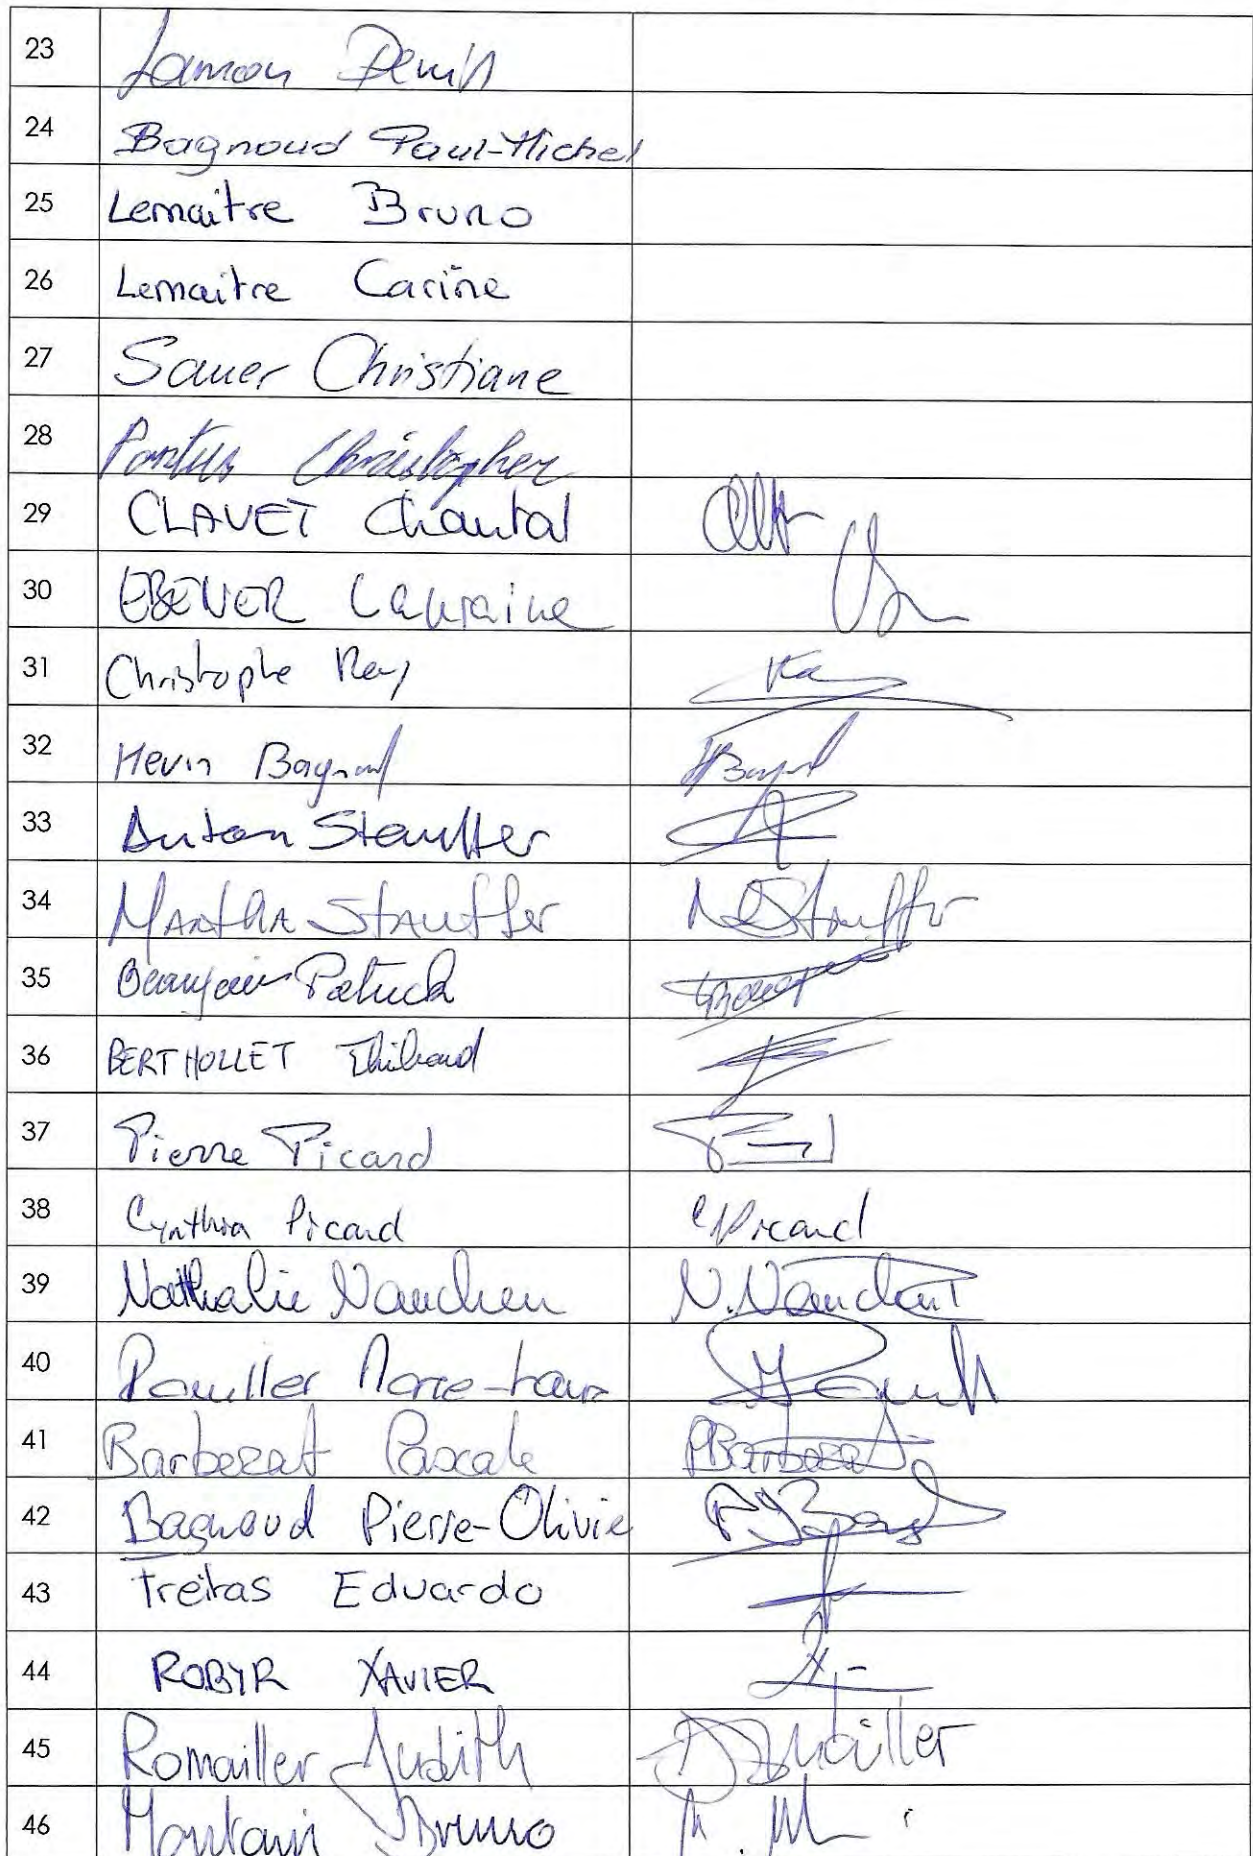 23 Lamon Denis
24 Bagnoud Paul-Michel
25 Lemaitre Bruno
26 Lemaitre Carine
27 Sauer Christiane
28 Christopher
29 CLAVET Chantal
30 EBENER Lauraine
31 Christophe Rey
32 Bagnoud
33 Anton Stauffer
34 MARTHA STAUFFer M Stauffer
35 Patrick
36 BERTHOLLET Thibaud
37 Pierre Picard
38 Cynthia Picard CPicard
39 Nathalie N.
40
41 Barbezat Pascale PBarbezat
42 Bagnoud Pierre-Olivie
43 Freitas Eduardo
44 ROBYR XAVIER
45 Romailler Judith
46 Bruno